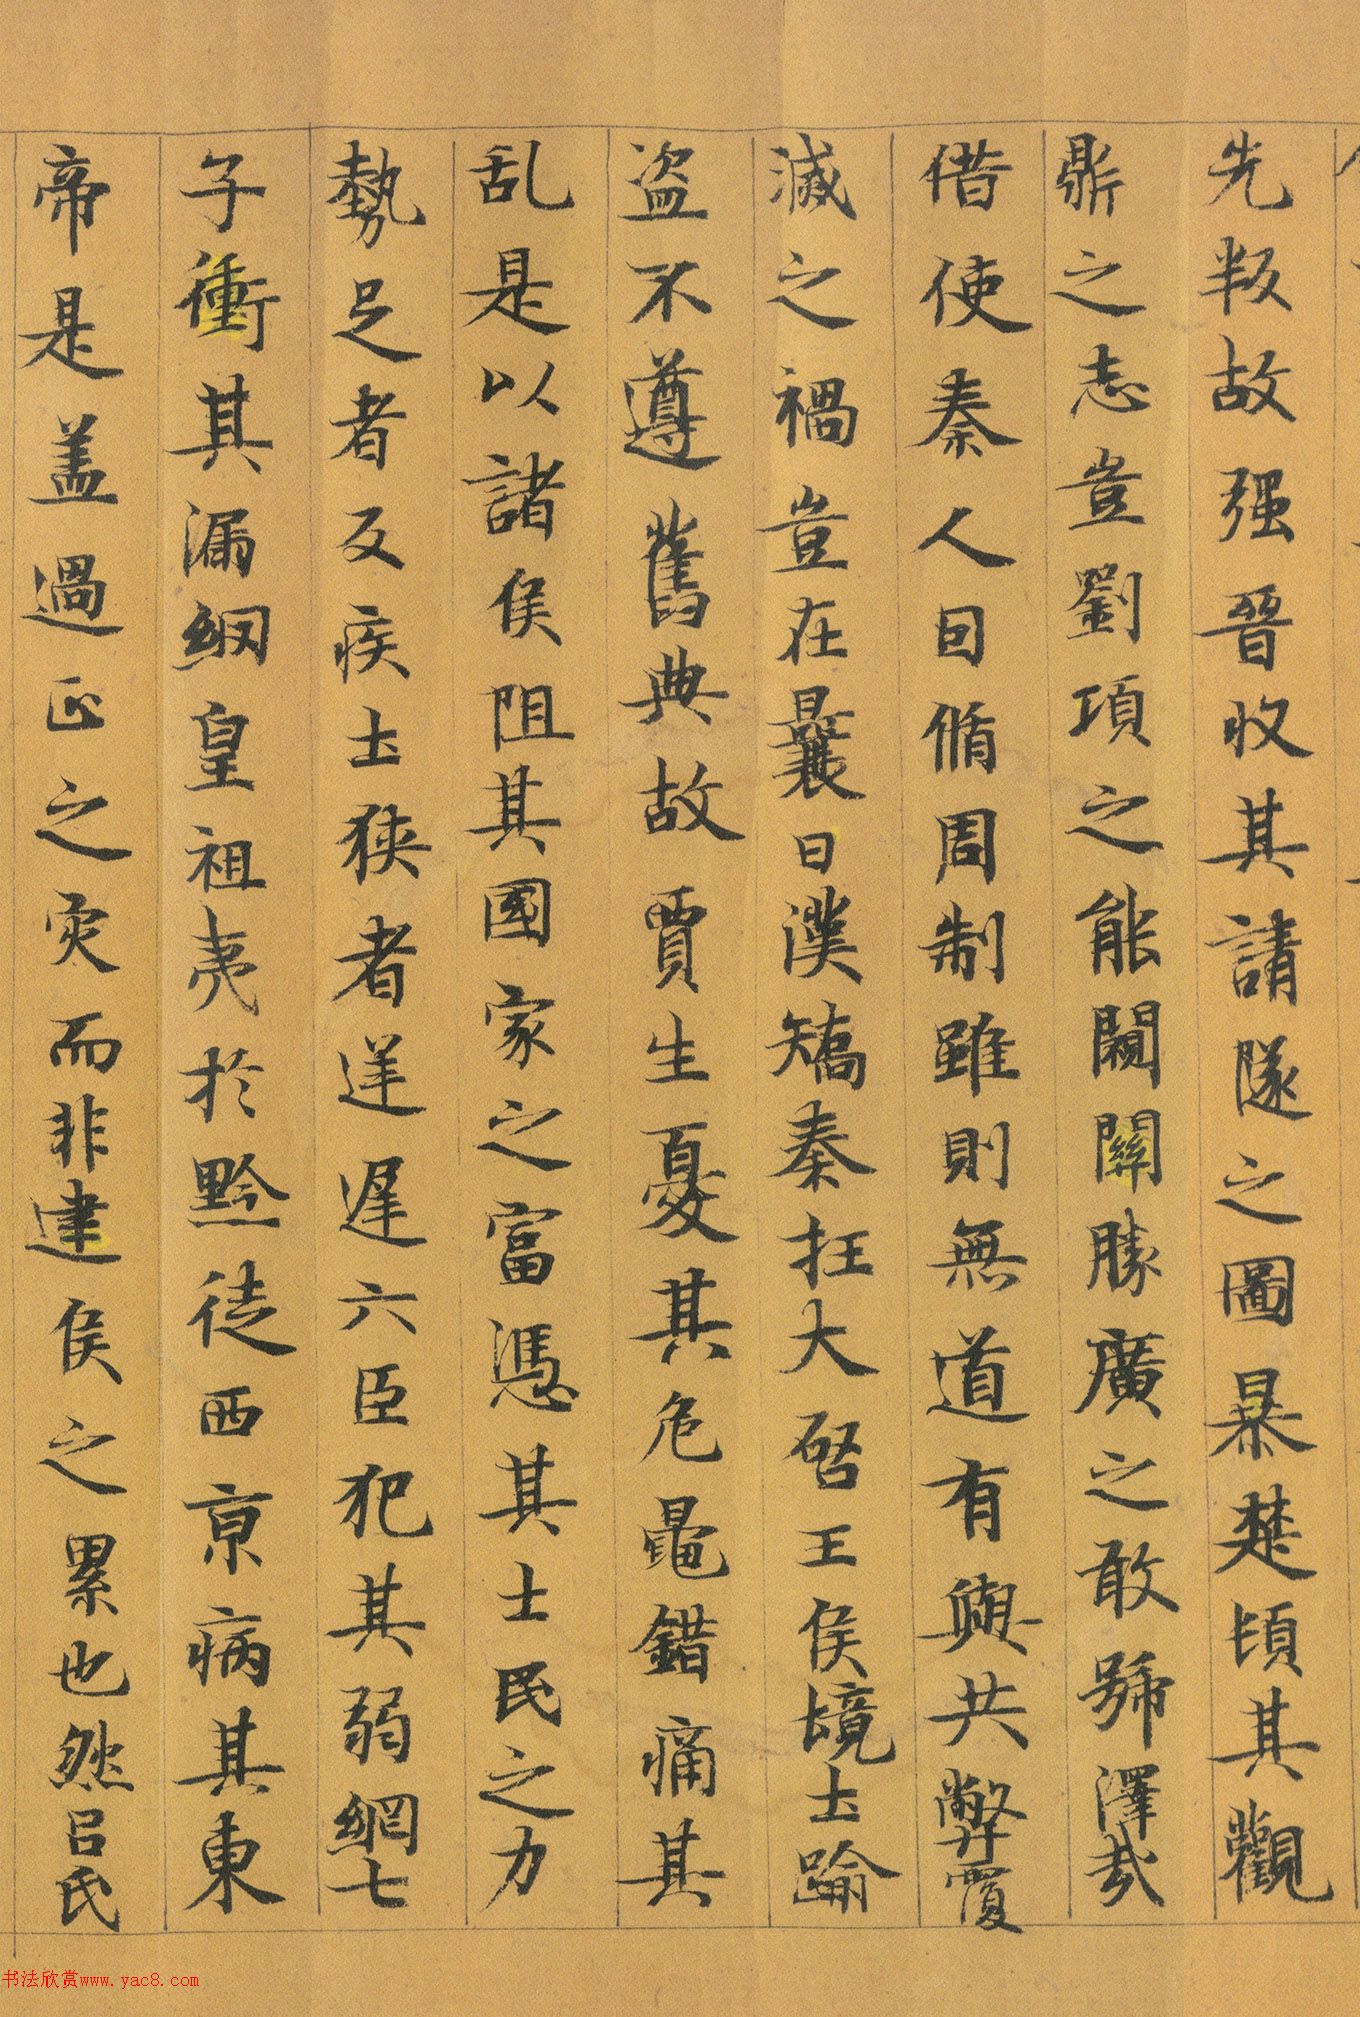 先叛故强晉收其請隧之圖暴楚頃其觀
鼎之志豈劉項之能闚關勝廣之敢號澤哉
借使秦人因脩周制雖則無道有與共弊覆
滅之禍豈在曩日漢矯秦枉大啓王侯境土踰
盜不遵舊典故賈生憂其危鼂錯痛其
乱是以諸侯阻其國家之富憑其士民之力
勢足者反疾土狹者逆遲六臣犯其弱綱七
子衝其漏網皇祖夷於黔徒西京病其東
帝是盖過正之灾而非建侯之累也然呂氏
书法欣赏www.yac8.com